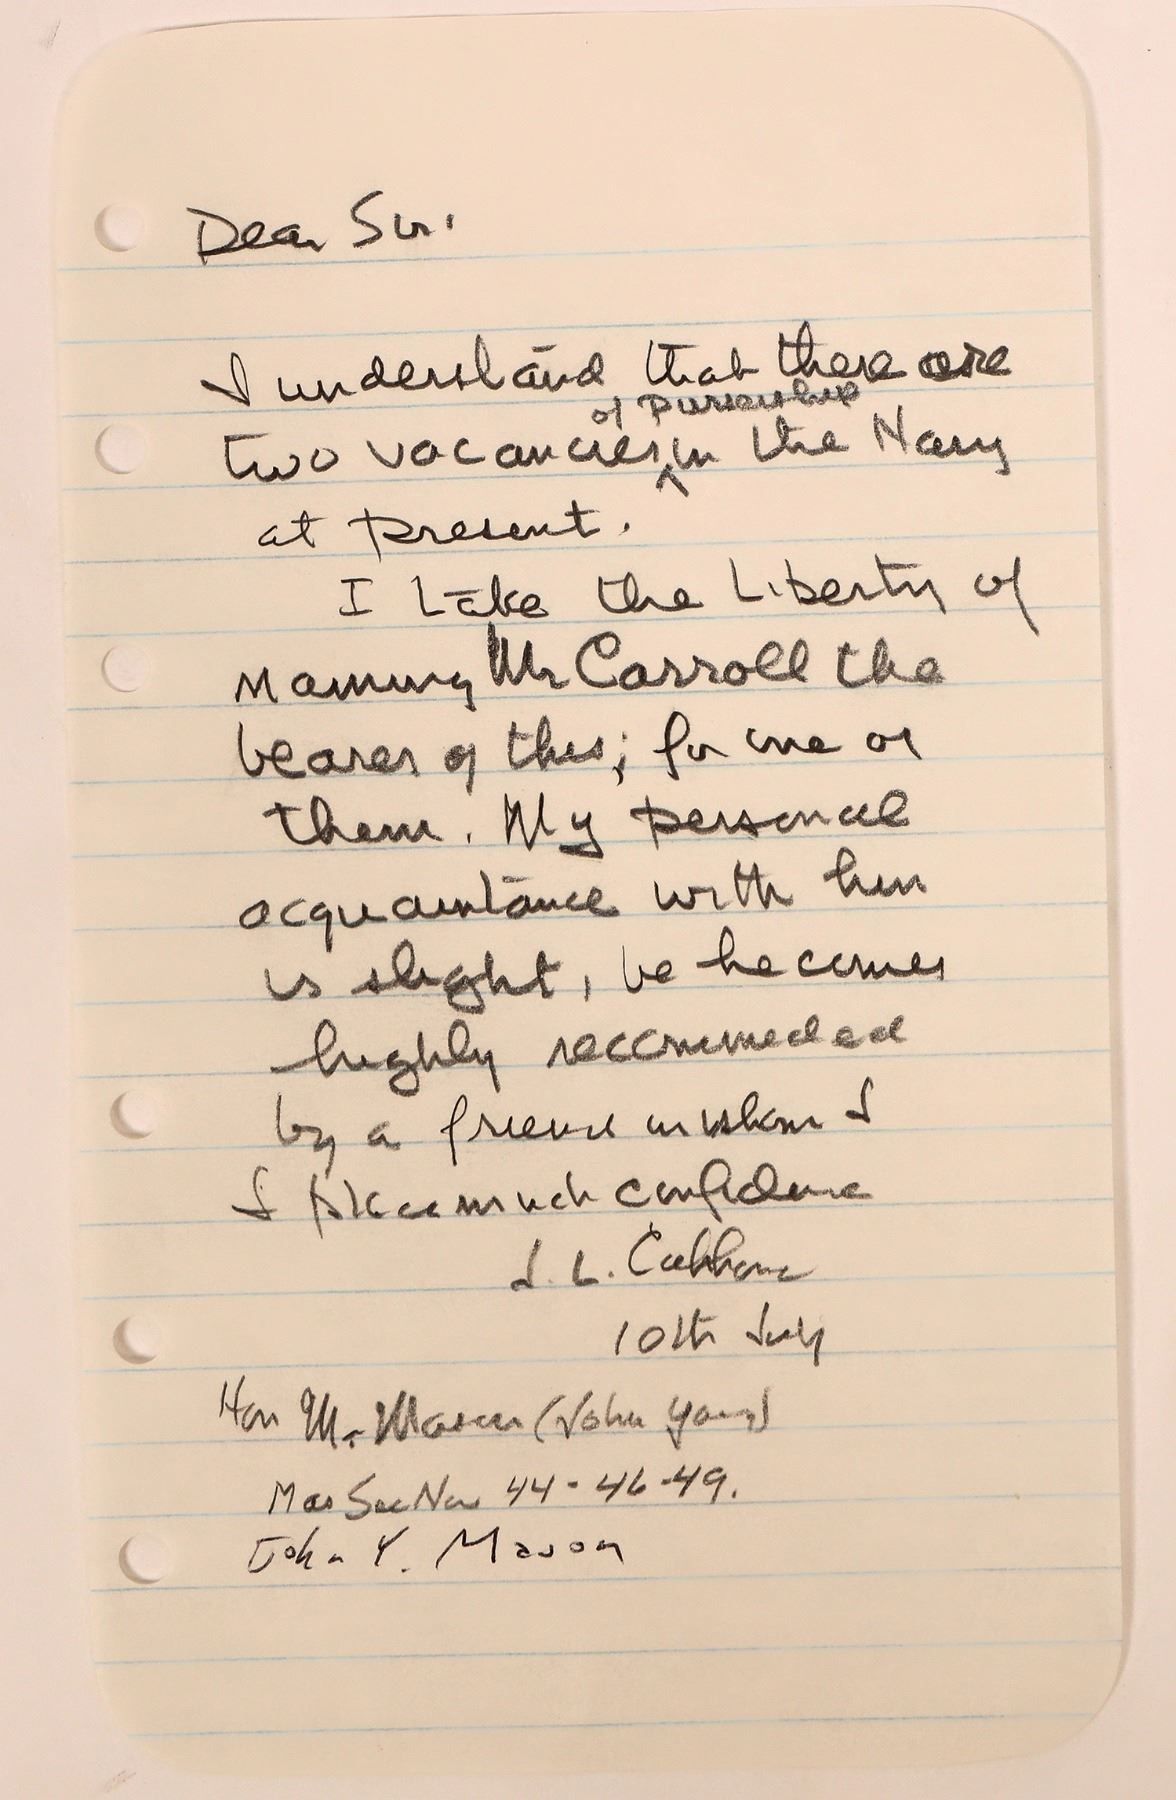 Dear Sir.
I understand that there are
of pursership
two vacancies ^ in the Navy
at present.
I take the Liberty of
naming Mr Carroll the
bearer of this; for one of
them. My personal
acquaintance with him
is slight, be he comes
highly recommeded
by a friend in whom I
I place much confidence
J. C. Calhoun
10th July
Hon Mr. Mason (John Young)
Sec Nav 44-46-49.
John Y. Mason